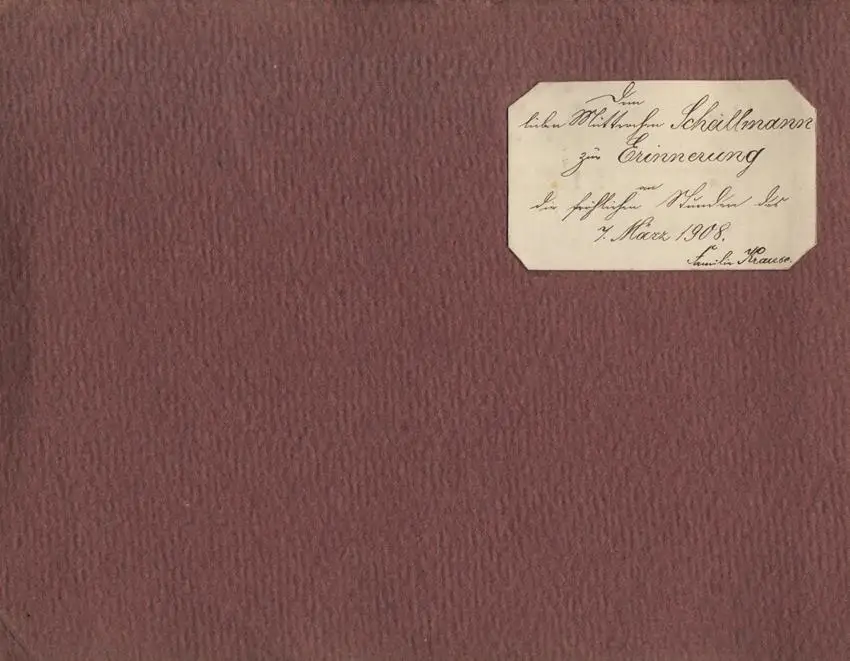 Dem
lieben Mütterchen
zur Erinnerung
an
die fröhlichen Stunden des
7. März 1908.
Familie Krause.